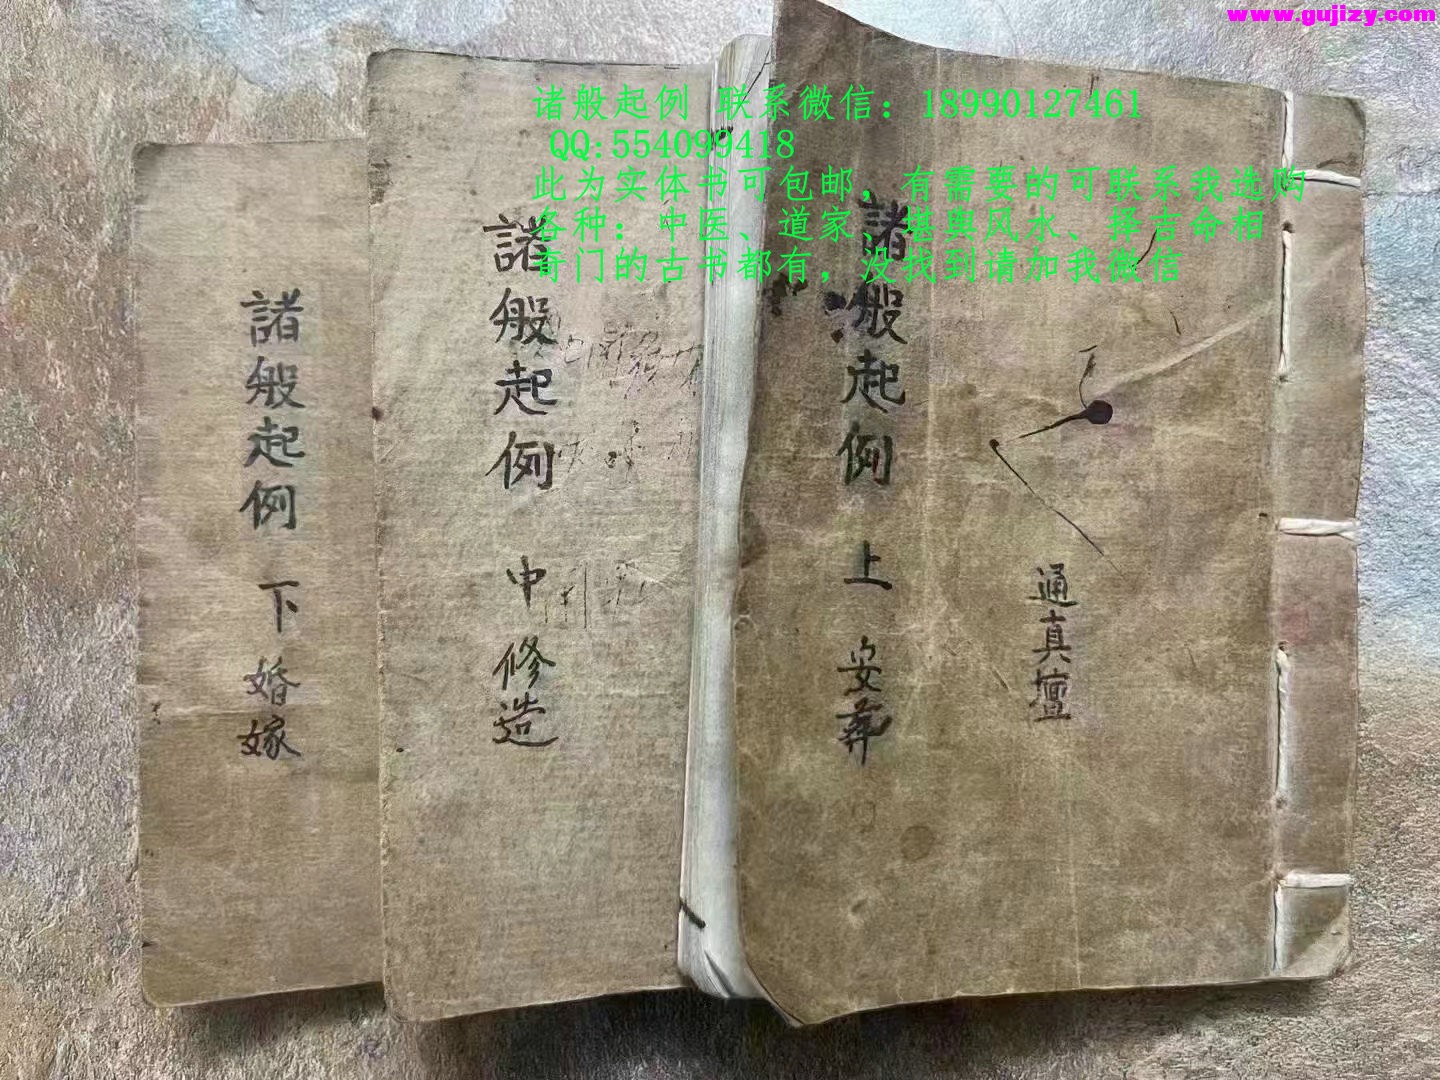 www.gujizy.com
诸般起例 联系微信：18990127461
QQ:554099418
此为实体书可包邮，有需要的可联系我选购
各种：中医、道家、堪舆风水、择吉命相
奇门的古书都有，没找到请加我微信
通真壇
諸般起例 上 安葬
諸般起例 中 修造
諸般起例 下 婚嫁